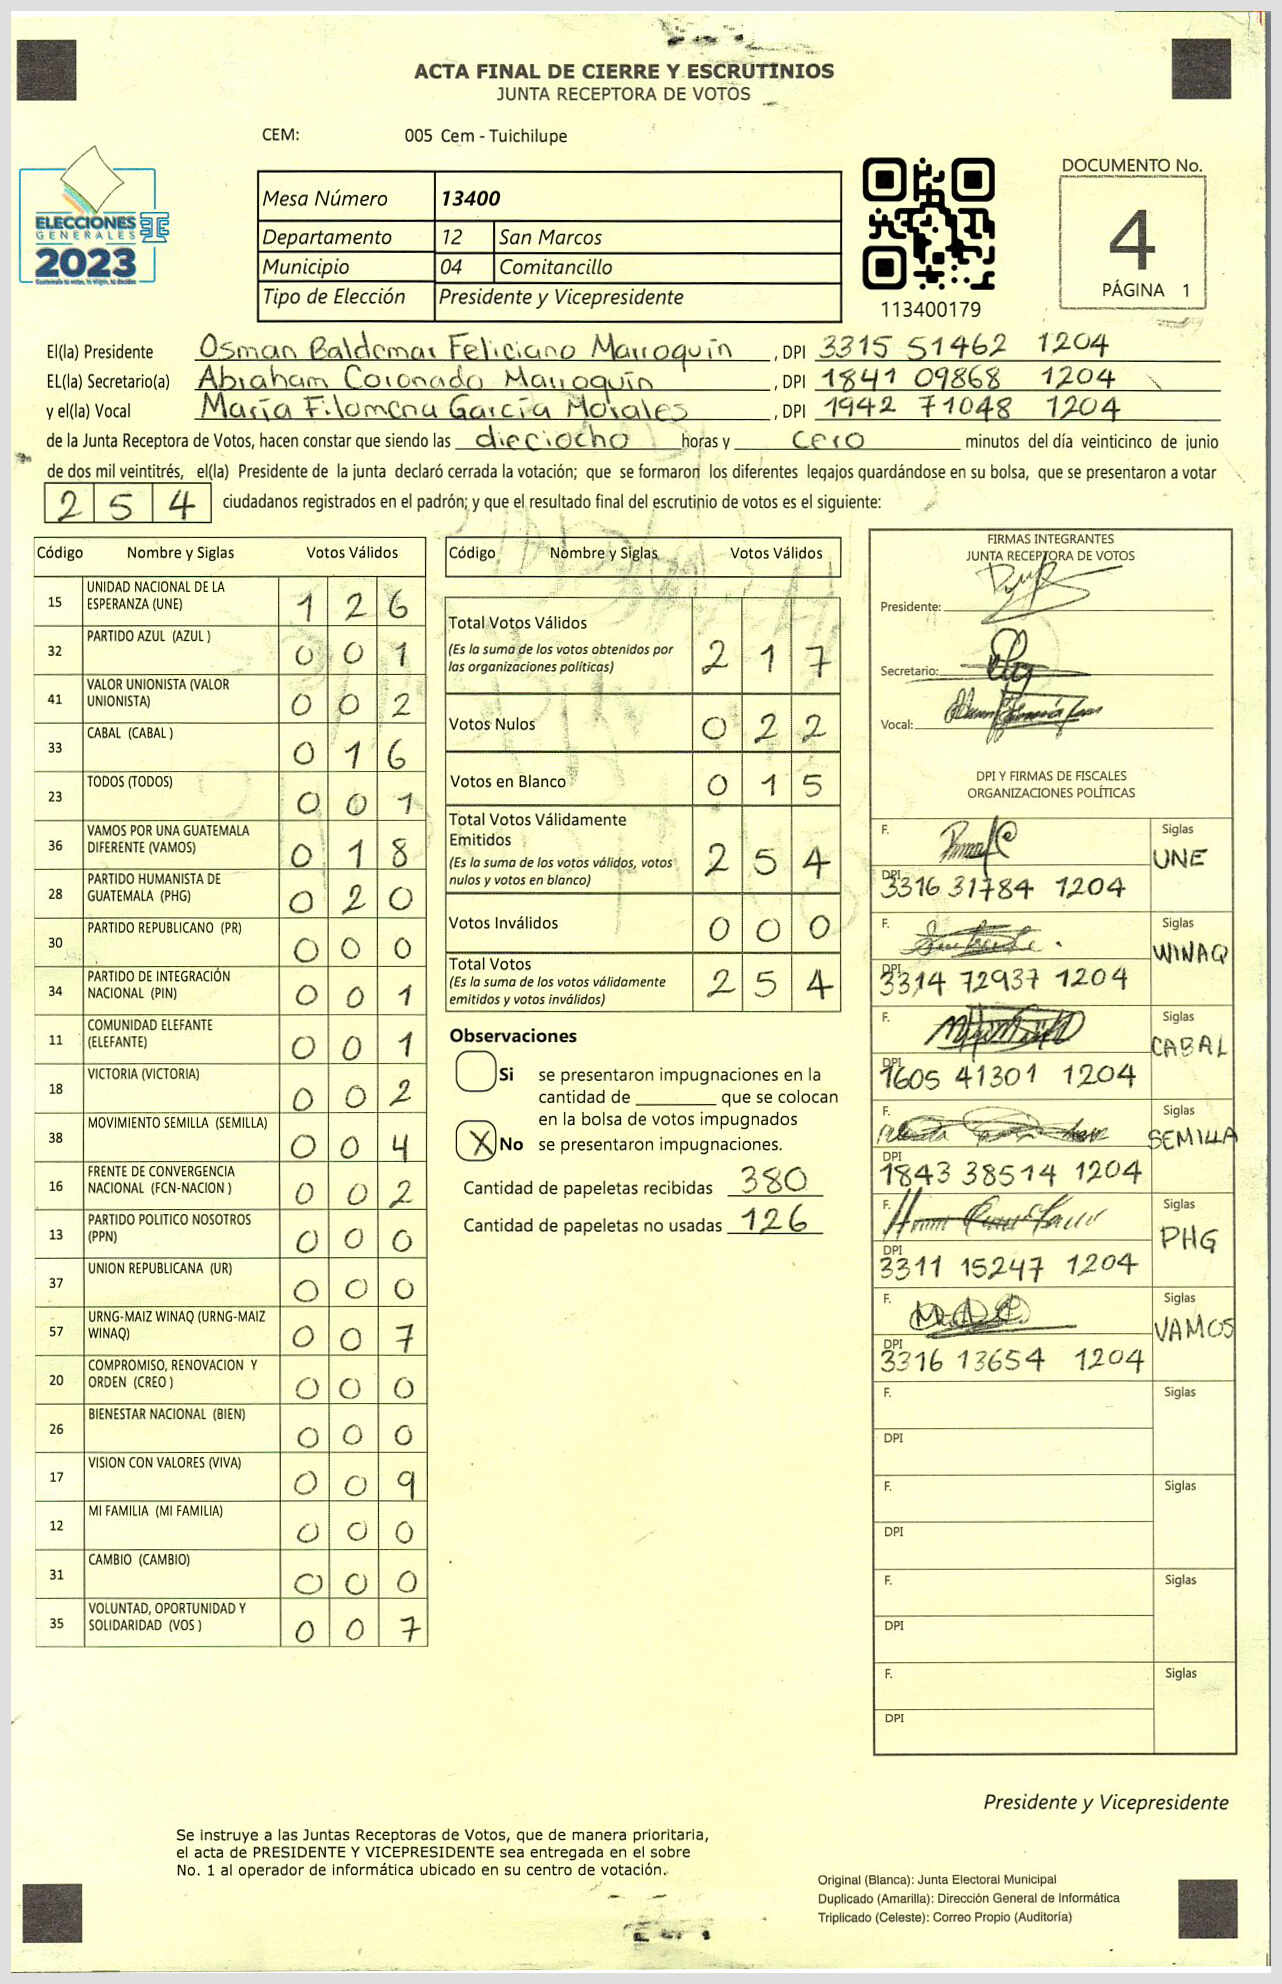 ACTA FINAL DE CIERRE Y ESCRUTINIOS
JUNTA RECEPTORA DE VOTOS
CEM: 005 Cem - Tuichilupe
ELECCIONES
GENERALES
2023
Mesa Número 13400
Departamento 12 San Marcos
Municipio 04 Comitancillo
Tipo de Elección Presidente y Vicepresidente
113400179
DOCUMENTO No.
4
PÁGINA 1
El(la) Presidente Osman Baldemar Feliciano Marroquín , DPI 3315 51462 1204
EL(la) Secretario(a) Abraham Coronado Marroquín , DPI 1841 09868 1204
y el(la) Vocal María Filomena García Morales , DPI 1942 71048 1204
de la Junta Receptora de Votos, hacen constar que siendo las dieciocho horas y cero minutos del día veinticinco de junio
de dos mil veintitrés, el(la) Presidente de la junta declaró cerrada la votación; que se formaron los diferentes legajos quardándose en su bolsa, que se presentaron a votar
254 ciudadanos registrados en el padrón; y que el resultado final del escrutinio de votos es el siguiente:
Código Nombre y Siglas Votos Válidos
15 UNIDAD NACIONAL DE LA
ESPERANZA (UNE) 126
32 PARTIDO AZUL (AZUL ) 001
41 VALOR UNIONISTA (VALOR
UNIONISTA) 002
33 CABAL (CABAL ) 016
23 TODOS (TODOS) 001
36 VAMOS POR UNA GUATEMALA
DIFERENTE (VAMOS) 018
28 PARTIDO HUMANISTA DE
GUATEMALA (PHG) 020
30 PARTIDO REPUBLICANO (PR) 000
34 PARTIDO DE INTEGRACIÓN
NACIONAL (PIN) 001
11 COMUNIDAD ELEFANTE
(ELEFANTE) 001
18 VICTORIA (VICTORIA) 002
38 MOVIMIENTO SEMILLA (SEMILLA) 004
16 FRENTE DE CONVERGENCIA
NACIONAL (FCN-NACION ) 002
13 PARTIDO POLITICO NOSOTROS
(PPN) 000
37 UNION REPUBLICANA (UR) 000
57 URNG-MAIZ WINAQ (URNG-MAIZ
WINAQ) 007
20 COMPROMISO, RENOVACION Y
ORDEN (CREO ) 000
26 BIENESTAR NACIONAL (BIEN) 000
17 VISION CON VALORES (VIVA) 009
12 MI FAMILIA (MI FAMILIA) 000
31 CAMBIO (CAMBIO) 000
35 VOLUNTAD, OPORTUNIDAD Y
SOLIDARIDAD (VOS ) 007
Código Nombre y Siglas Votos Válidos
Total Votos Válidos
(Es la suma de los votos obtenidos por
las organizaciones políticas) 217
Votos Nulos 022
Votos en Blanco 015
Total Votos Válidamente
Emitidos
(Es la suma de los votos válidos, votos
nulos y votos en blanco) 254
Votos Inválidos 000
Total Votos
(Es la suma de los votos válidamente
emitidos y votos inválidos) 254
Observaciones
Si se presentaron impugnaciones en la
cantidad de ________ que se colocan
en la bolsa de votos impugnados
X No se presentaron impugnaciones.
Cantidad de papeletas recibidas 380
Cantidad de papeletas no usadas 126
FIRMAS INTEGRANTES
JUNTA RECEPTORA DE VOTOS
Presidente:
Secretario:
Vocal:
DPI Y FIRMAS DE FISCALES
ORGANIZACIONES POLÍTICAS
F. Siglas
UNE
DPI 3316 31784 1204
F. Siglas
WINAQ
DPI 3314 72937 1204
F. Siglas
CABAL
DPI 1605 41301 1204
F. Siglas
SEMILLA
DPI 1843 38514 1204
F. Siglas
PHG
DPI 3311 15247 1204
F. Siglas
VAMOS
DPI 3316 13654 1204
F. Siglas
DPI
F. Siglas
DPI
F. Siglas
DPI
F. Siglas
DPI
Presidente y Vicepresidente
Se instruye a las Juntas Receptoras de Votos, que de manera prioritaria,
el acta de PRESIDENTE Y VICEPRESIDENTE sea entregada en el sobre
No. 1 al operador de informática ubicado en su centro de votación.
Original (Blanca): Junta Electoral Municipal
Duplicado (Amarilla): Dirección General de Informática
Triplicado (Celeste): Correo Propio (Auditoría)